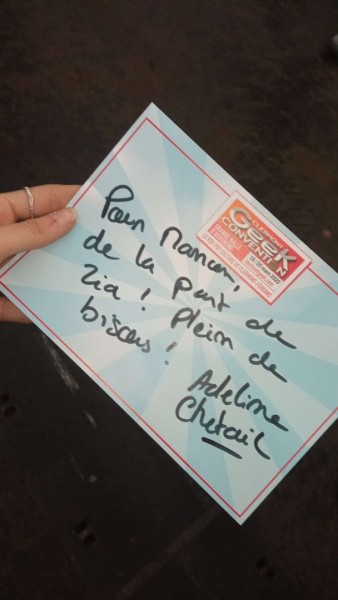 CLERMONT
GEEK
CONVENTION
Pour Manon,
de la part de
Zia ! Plein de
bisous !
Adeline
Chetail